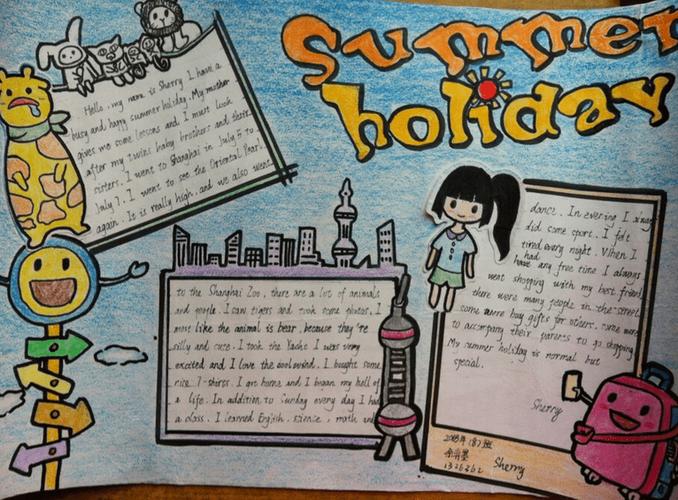 Summer
holiday
Hello, my name is Sherry. I have a
busy and happy summer holiday. My mother
gives me some lessons and I must look
after my twins baby brothers and their
sisters. I went to Shanghai in July 5 to
July 7. I went to see the Oriental Pearl
again. It is really high. and we also went
to the Shanghai Zoo, there are a lot of animals
and people. I saw tigers and took some photos. I
most like the animal is bear, because they're
silly and cute. I took the Yacht. I was very
excited and I love the I bought some
nice T-shirts. I got home and I began my hell of
a life. In addition to Sunday every day I had
a class. I learned English, science, math and
dance. In evening I
did some sport. I felt
tired every night. When I
had
have any free time I always
went shopping with my best friend
there were many people in the street
some were buy gifts for others. some were
to accompany their parents to go shopping
My summer holiday is normal but
special.
Sherry
班
Sherry